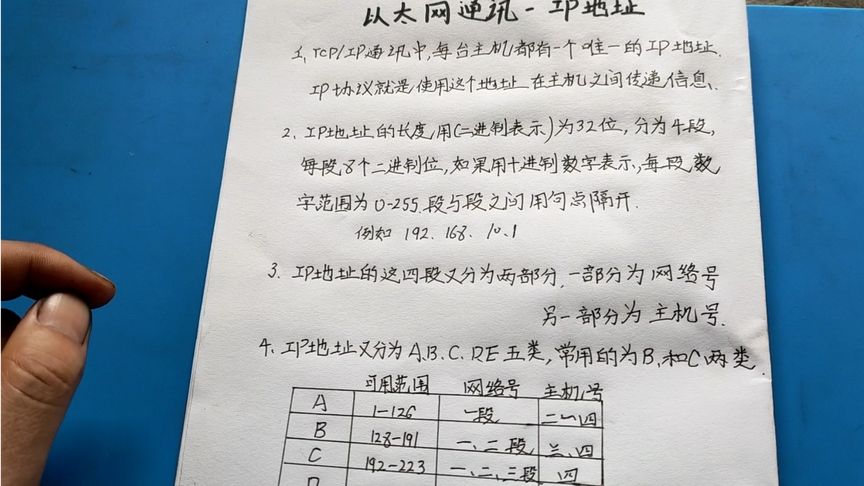 以太网通讯-IP地址
1、TCP/IP通讯中,每台主机都有一个唯一的IP地址.
IP协议就是使用这个地址在主机之间传递信息.
2、IP地址的长度用(二进制表示)为32位,分为4段,
每段8个二进制位,如果用十进制数字表示,每段数
字范围为0-255.段与段之间用句点隔开.
例如 192. 168. 10.1
3、IP地址的这四段又分为两部分,一部分为网络号
另一部分为主机号.
4、IP地址又分为A.B.C.D.E五类,常用的为B,和C两类.
可用范围 网络号 主机号
A 1-126 一段 二一四
B 128-191 一、二段 三、四
C 192-223 一、二、三段 四
D